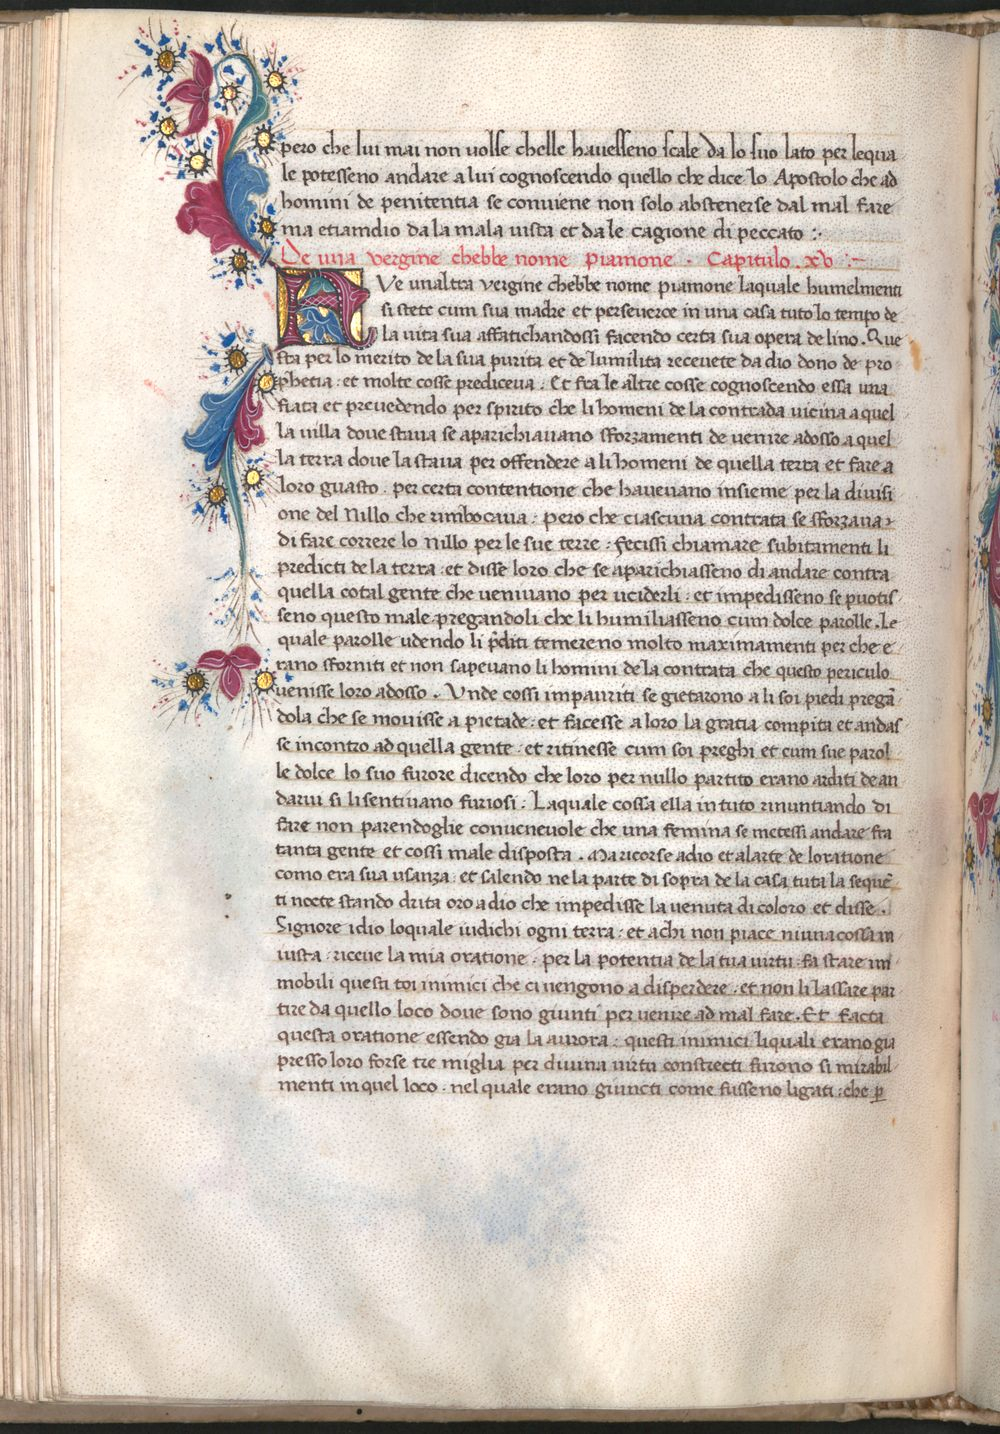 pero che lui mai non volse chelle havesseno scale da lo suo lato per lequa
le potesseno andare a lui cognoscendo quello che dice lo Apostolo che ad
homini de penitentia se conviene non solo abstenerse dal mal fare
ma etiamdio da la mala vista et da le cagione di peccato :·
De una vergine chebbe nome piamone · Capitulo .xv :~
FVe unaltra vergine chebbe nome piamone laquale humelmenti
si stete cum sua madre et perseveroe in una casa tuto lo tempo de
la vita sua affatichandossi facendo certa sua opera de lino. Que
sta per lo merito de la sua purita et de lumilita recevete da dio dono de pro
phetia: et molte cosse prediceva: Et fra le altre cosse cognoscendo essa una
fiata et prevedendo per spirito che li homeni de la contrada vicina a quel
la villa dove stava se aparichiavano sforzamenti de venire adosso a quel
la terra dove la stava per offendere a li homeni de quella terra et fare a
loro guasto. per certa contentione che havevano insieme per la divisi
one del Nillo che rimbocava: pero che ciascuna contrata se sforzava
di fare correre lo Nillo per le sue terre: fecissi chiamare subitamenti li
predicti de la terra: et disse loro che se aparichiasseno di andare contra
quella cotal gente che venivano per uciderli: et impedisseno se puotis
seno questo male pregandoli che li humiliasseno cum dolce parolle. Le
quale parolle udendo li p̄diti temereno molto maximamenti per che e
rano sforniti et non sapevano li homini de la contrata che questo periculo
venisse loro adosso. Unde cossi impauriti se gietarono a li soi piedi pregā
dola che se movisse a pietade: et facesse a loro la gratia compita et andas
se incontro ad quella gente: et ritinesse cum soi preghi et cum sue parol
le dolce lo suo furore dicendo che loro per nullo partito erano arditi de an
darui si li sentivano furiosi: Laquale cossa ella in tuto rinuntiando di
fare non parendoglie convenevole che una femina se metessi andare fra
tanta gente et cossi male disposta. Ma ricorse a dio et alarte de loratione
como era sua usanza: et salendo ne la parte di sopra de la casa tuta la sequē
ti nocte stando drita oro a dio che impedisse la venuta di coloro et disse.
Signore idio loquale iudichi ogni terra: et achi non piace niuna cossa in
iusta: riceve la mia oratione: per la potentia de la tua virtu: fa stare im
mobili questi toi inimici che ci vengono a disperdere: et non li lassare par
tire da quello loco dove sono giunti per venire ad mal fare. Et facta
questa oratione essendo gia la aurora: questi inimici liquali erano gia
presso loro forse tre miglia per divina virtu constrecti furono si mirabil
menti in quel loco· nel quale erano giuncti come fusseno ligati: che ꝑ